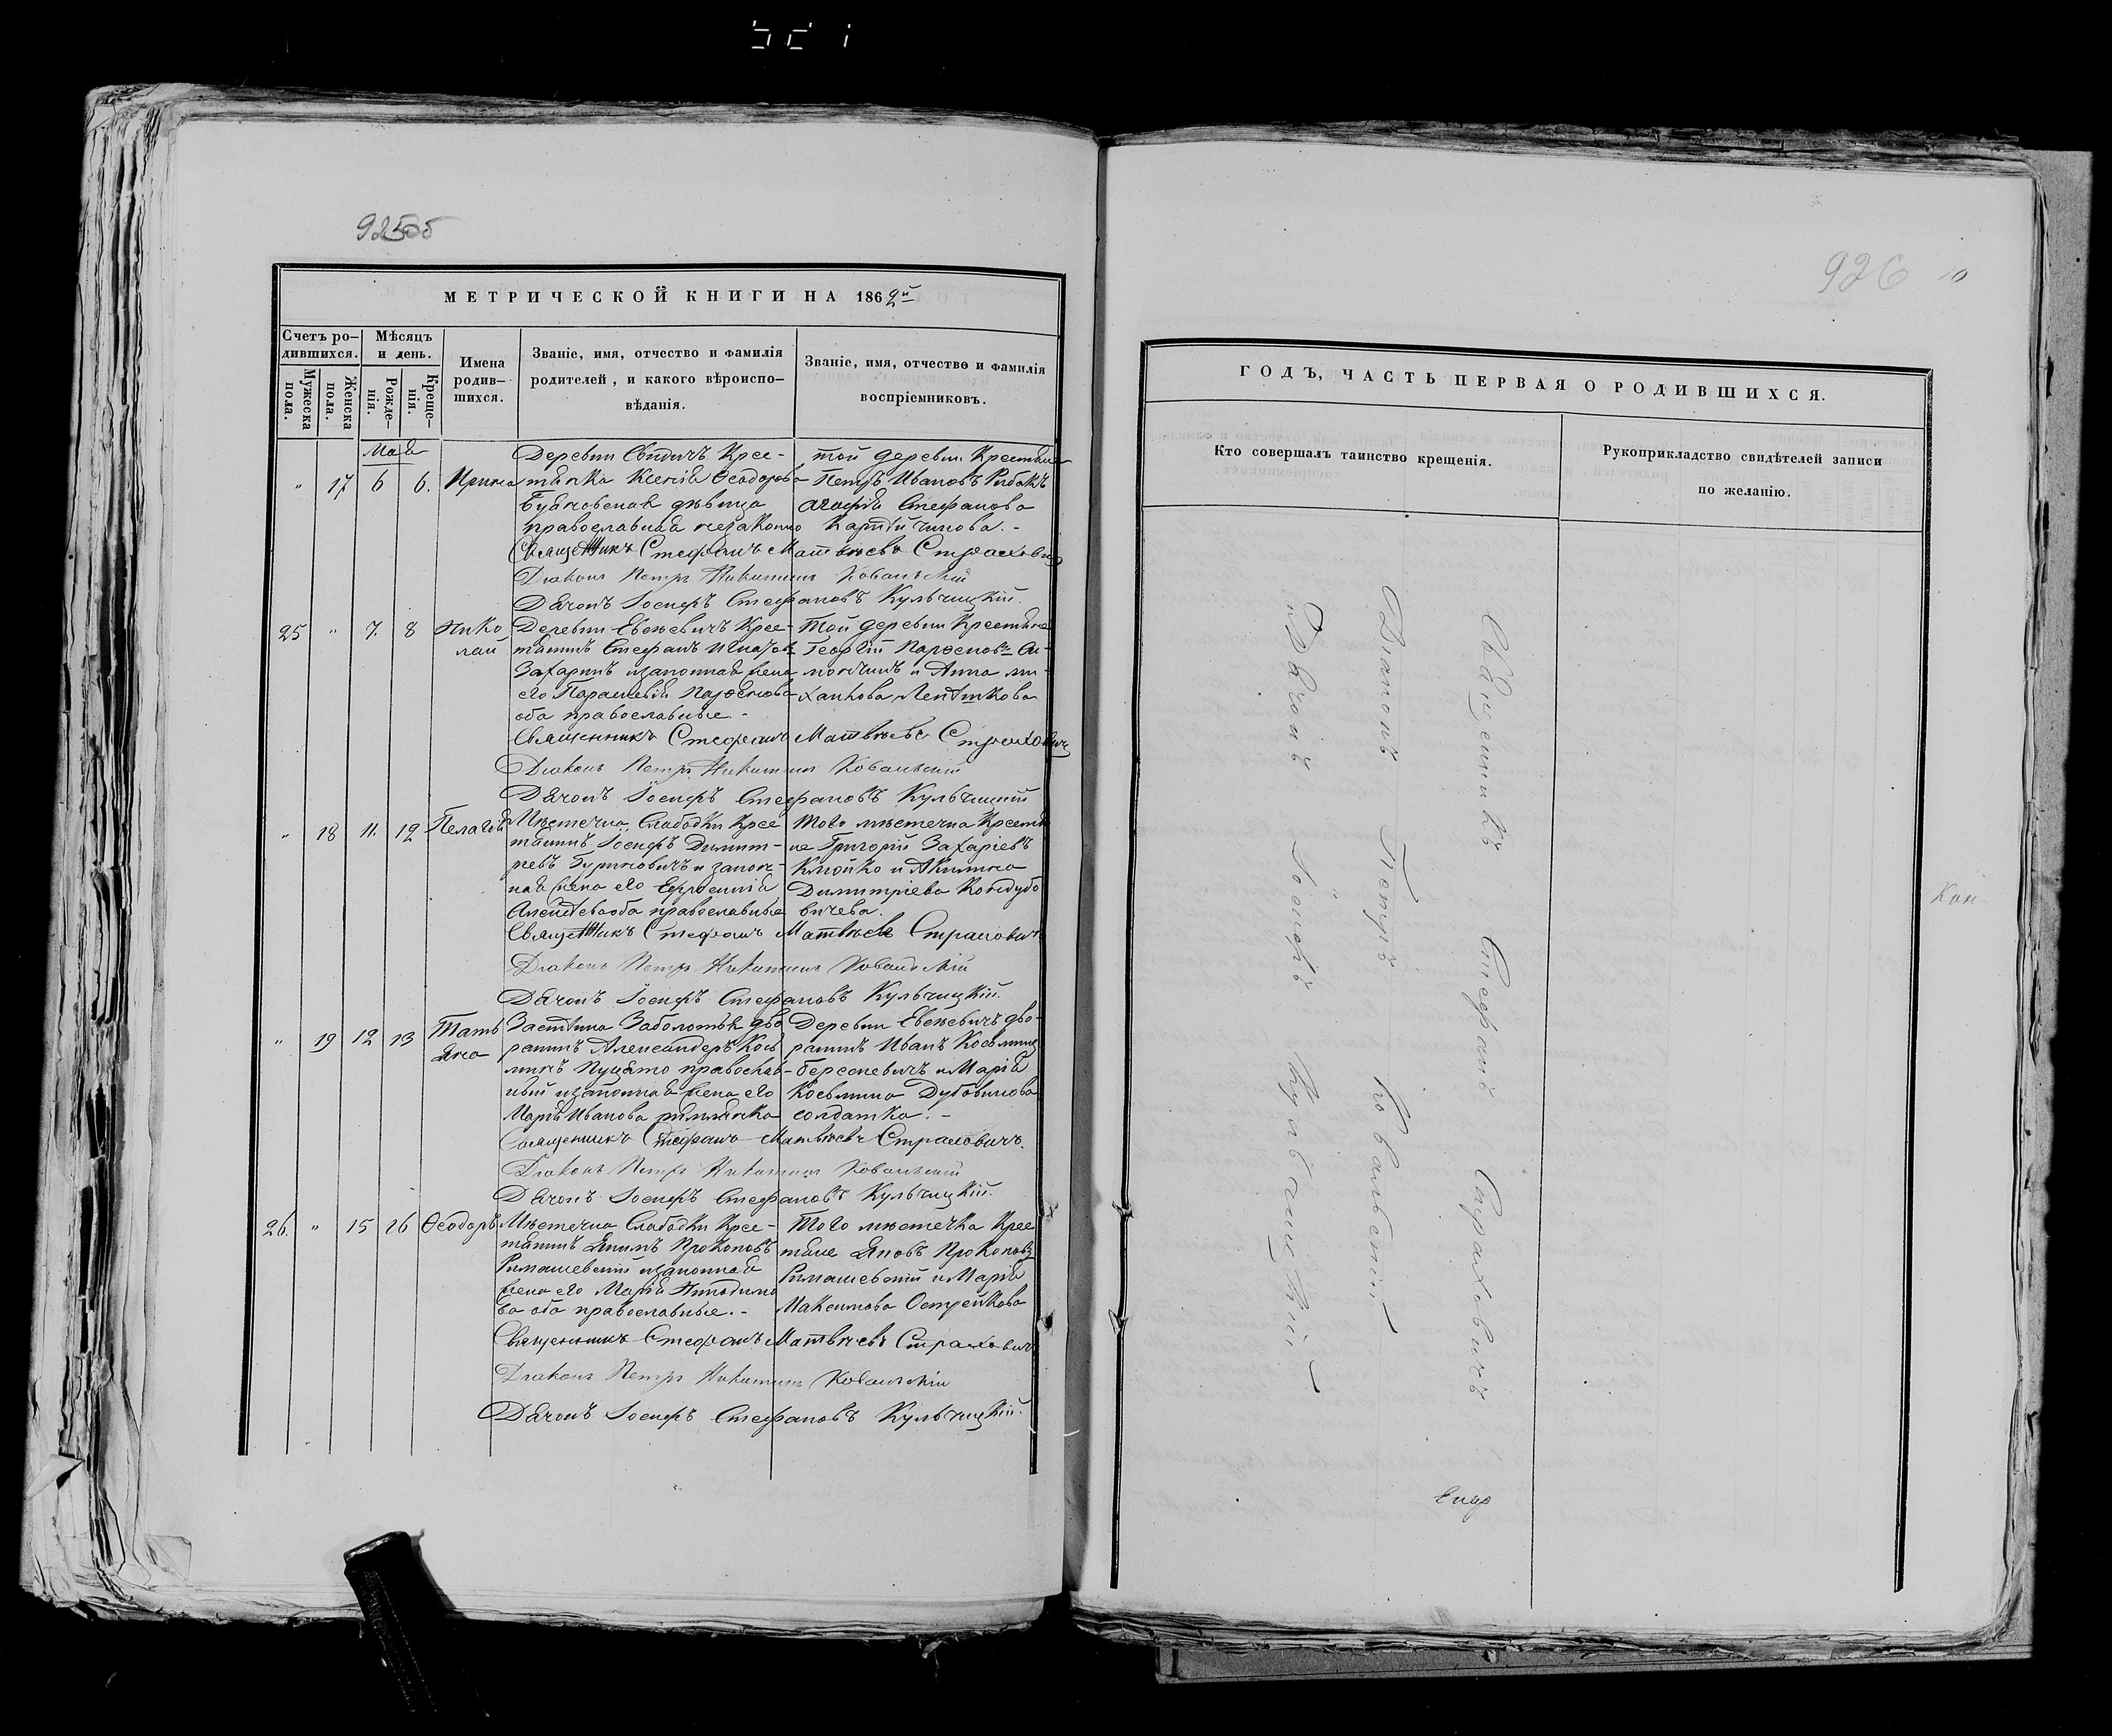 925об
МЕТРИЧЕСКОЙ КНИГИ НА 1862й
Счетъ ро-
дившихся.
Мужеска
пола.
Женска
пола.
Мѣсяцъ
и день.
Рожде-
нія.
Креще-
нія.
Имена
родив-
шихся.
Званіе, имя, отчество и фамилія
родителей, и какого вѣроиспо-
вѣданія.
Званіе, имя, отчество и фамилія
воспріемниковъ.
Мая
" 17 6 6. Ирина
Деревни Свидичъ Крес-
тьянка Ксенія Ѳеодорова
дѣвица
православная незаконно
той деревни Крестьяне
Петръ Ивановъ Рыбакъ
Агафія Стефанова
Священникъ Стефанъ Матвѣевъ Страховичъ
Діаконъ Петръ Никитинъ Ковальскій
Дьячокъ Іосифъ Стефановъ Кульчицкій.
25 " 7. 8 Нико
лай
Деревни Евсевичъ Крес-
тьянинъ Стефанъ Игнатовъ
Захаринъ и законная жена
его Параскевія Парѳенова
оба православные.-
Той деревни Крестьяне
Георгій Парѳеновъ Си-
мончикъ и Анна Ми-
ханова
Священникъ Стефанъ Матвѣевъ Страховичъ
Діаконъ Петръ Никитинъ Ковальскій
Дьячокъ Іосифъ Стефановъ Кульчицкій
" 18 11. 12 Пелагія
Мѣстечка Слабодки Крес
тьянинъ Іосифъ Димит-
ріевъ Гуриновичъ и закон-
ная жена его Ефросинія
оба православные
Того мѣстечка Крестья
не Григорій Захаріевъ
Клюйко и Акилина
Димитріева
Священникъ Стефанъ Матвѣевъ Страховичъ
Діаконъ Петръ Никитинъ Ковальскій
Дьячокъ Іосифъ Стефановъ Кульчицкій.
" 19 12 13 Тать
яна
Застѣнка Заболотья дво
рянинъ Александеръ Косьминъ
Пуцято православ-
ный и законная жена его
Марія Иванова римлянка
Деревни Евсевичъ дво-
рянинъ Иванъ Косьминъ
Берсеневичъ и Марія
Косьмина Дубовикова
солдатка.-
Священникъ Стефанъ Матвѣевъ Страховичъ.
Діаконъ Петръ Никитинъ Ковальскій
Дьячокъ Іосифъ Стефановъ Кульчицкій.
26. " 15 16 Ѳеодоръ
Мѣстечка Слабодки Крес-
тьянинъ Якимъ Прокоповъ
Римашевскій и законная
жена его Марія Никодимо
ва оба православные.-
Того мѣстечка Крес
тьяне Яковъ Прокоповъ
Римашевскій и Марія
Максимова Острейкова
Священникъ Стефанъ Матвѣевъ Страховичъ
Діаконъ Петръ Никитинъ Ковальскій
Дьячокъ Іосифъ Стефановъ Кульчицкій.
926
ГОДЪ, ЧАСТЬ ПЕРВАЯ О РОДИВШИХСЯ.
Кто совершалъ таинство крещенія.
Рукоприкладство свидѣтелей записи
по желанію.
Священникъ Стефанъ Страховичъ
Діаконъ Петръ Ковальскій
Дьячокъ Іосифъ Кульчицкій